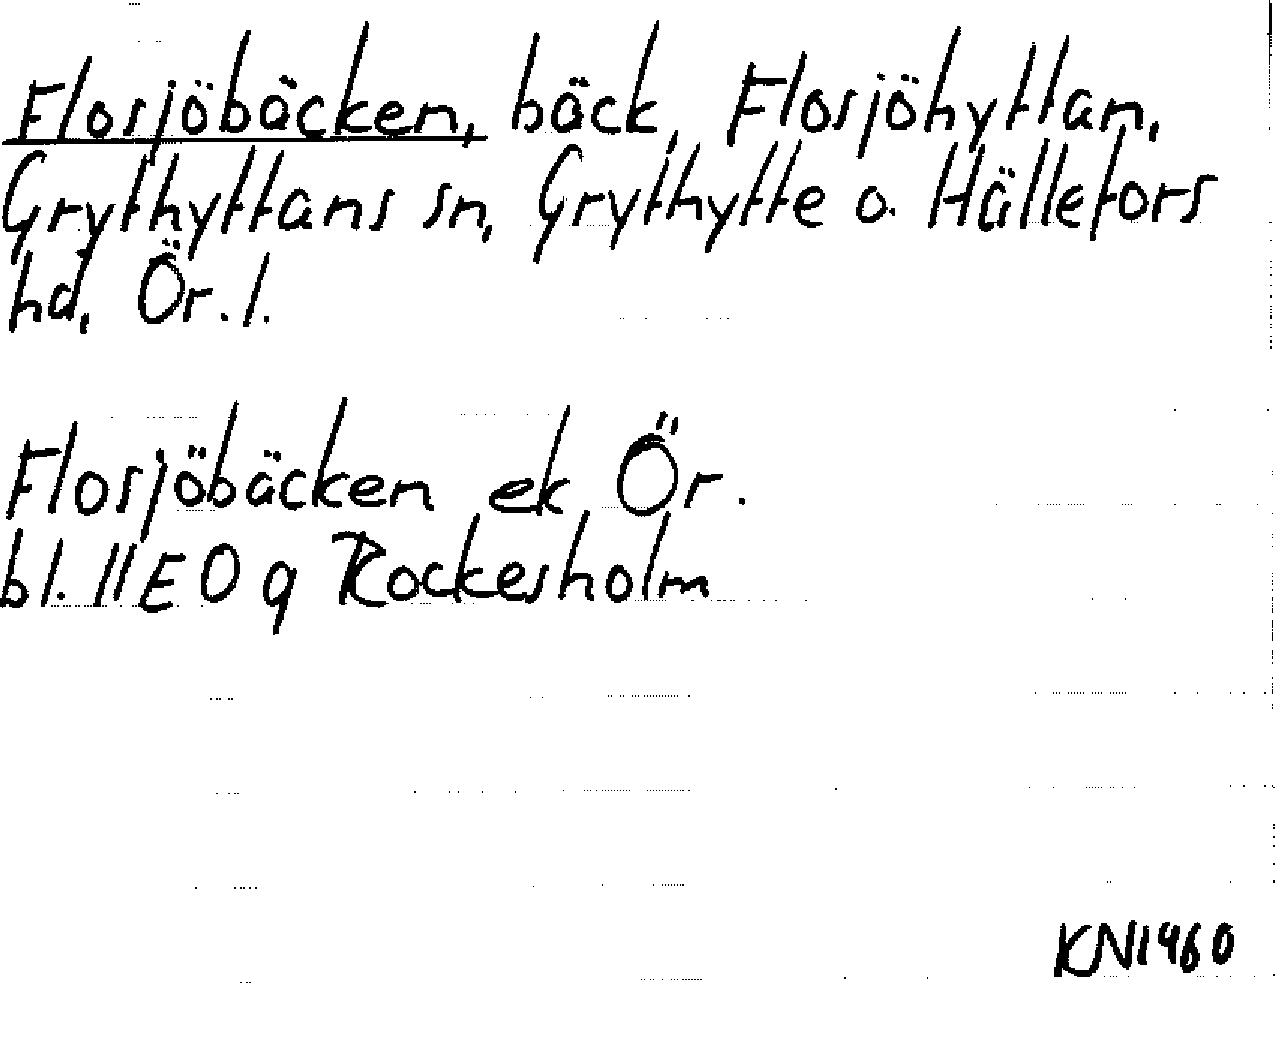 Flosjöbäcken, bäck, Flosjöhyttan,
Grythyttans sn, Grythytte o. Hällefors
hd, Ör. l.
Flosjöbäcken ek Ör.
bl. 11E 0 q Rockesholm
KN1960